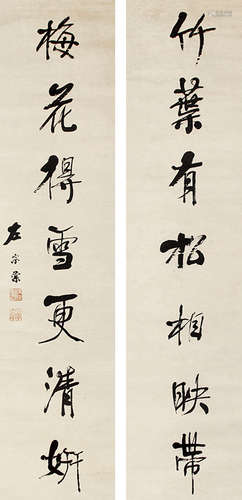 竹葉有松相映帶
梅花得雪更清妍
左宗棠